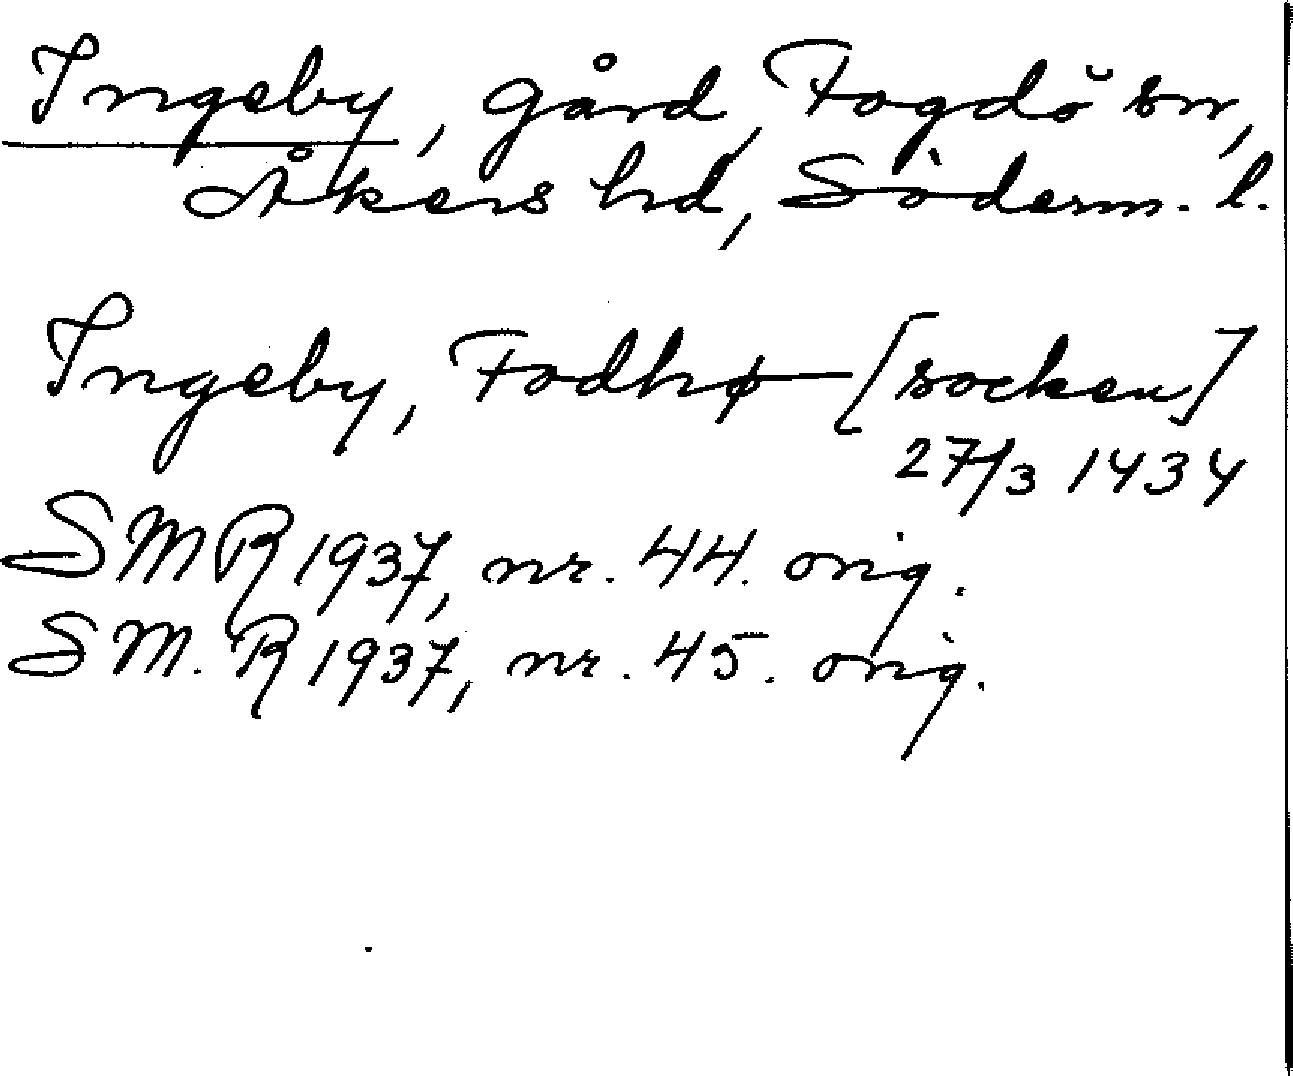 Ingeby, gård, Fogdö sn,
Åkers hd, Söderm. l.
Ingeby, Fodhø [socken]
27/3 1434
SMR 1937, nr. 44. orig.
SM.R 1937, nr. 45. orig.